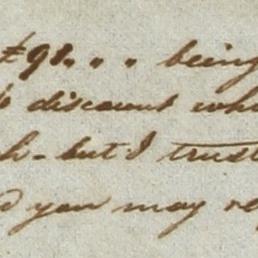 £98 " " " being
discount
- but I trust
you may